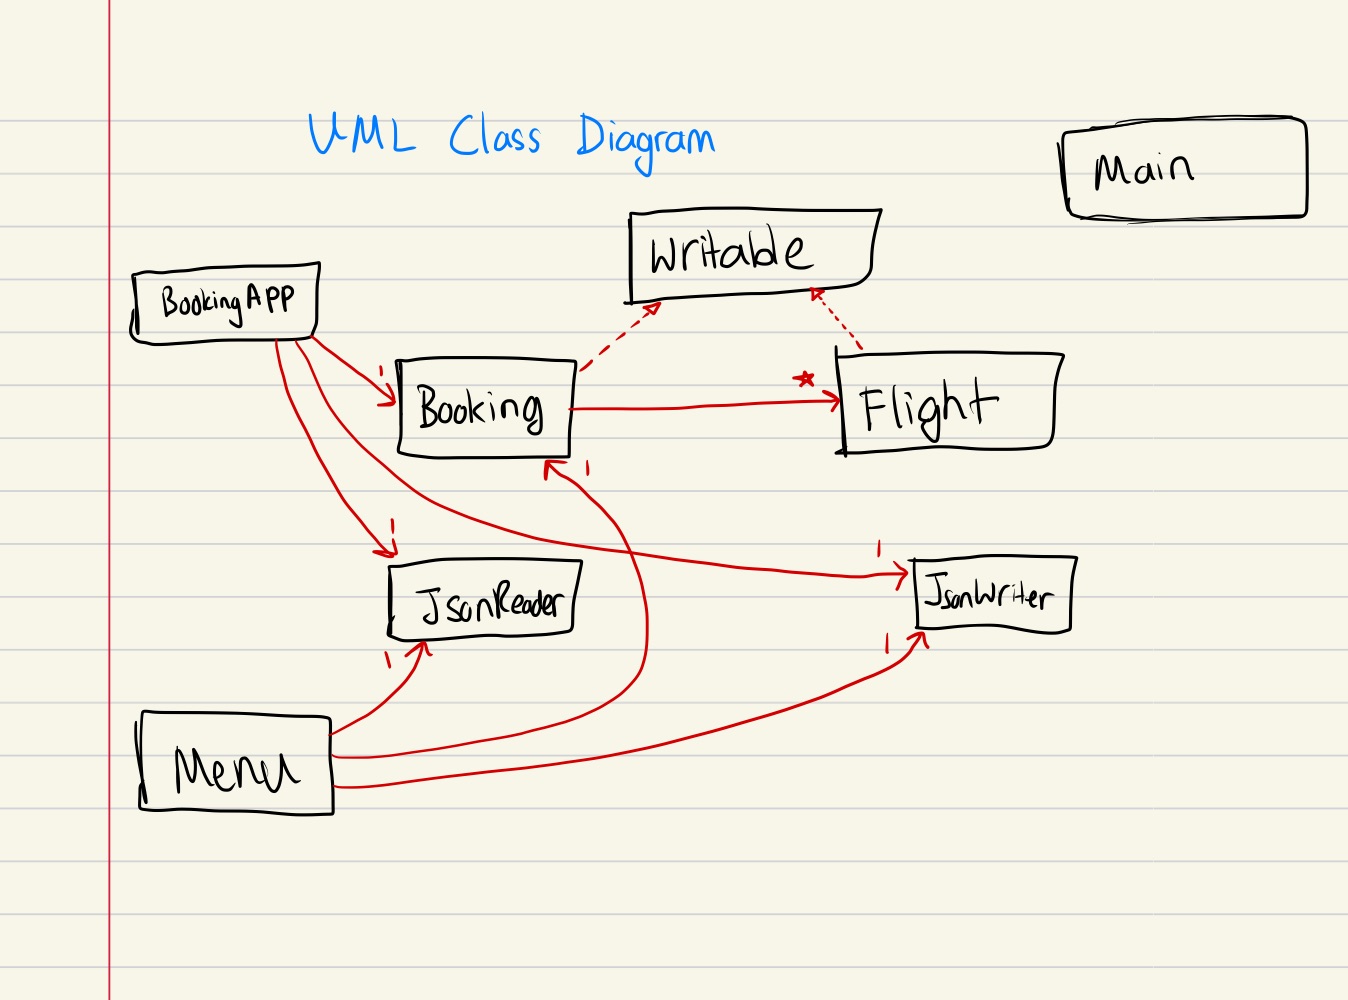 UML Class Diagram
Main
Writable
BookingAPP
1
Booking
*
Flight
1
1
1
JsonReader
JsonWriter
1
1
Menu